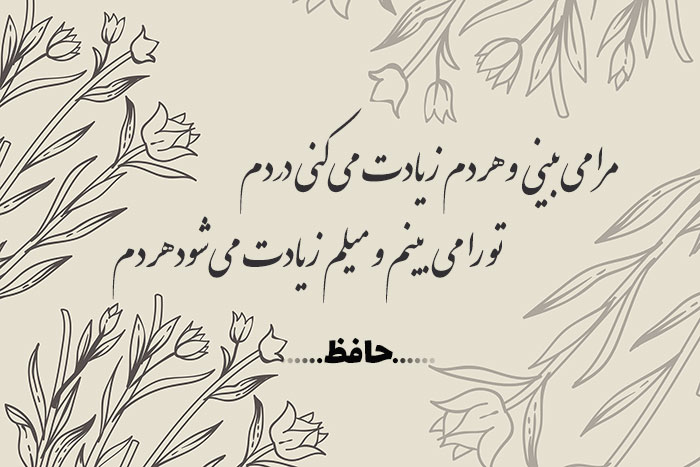 مرا می بینی و هر دم زیادت می کنی دردم
تو را می بینم و میلم زیادت می شود هر دم
......حافظ......